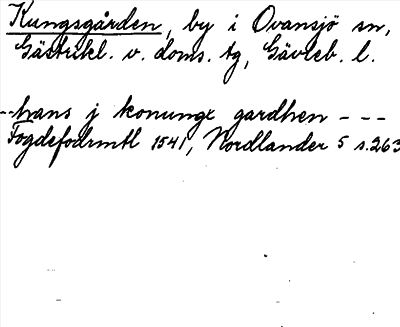 Kungsgården, by i Ovansjö sn,
Gästrikl. v. doms. tg, Gävleb. l.
--hans j konungx gardhen - - -
Fogdefodrmtl 1541, Nordlander 5 s.263